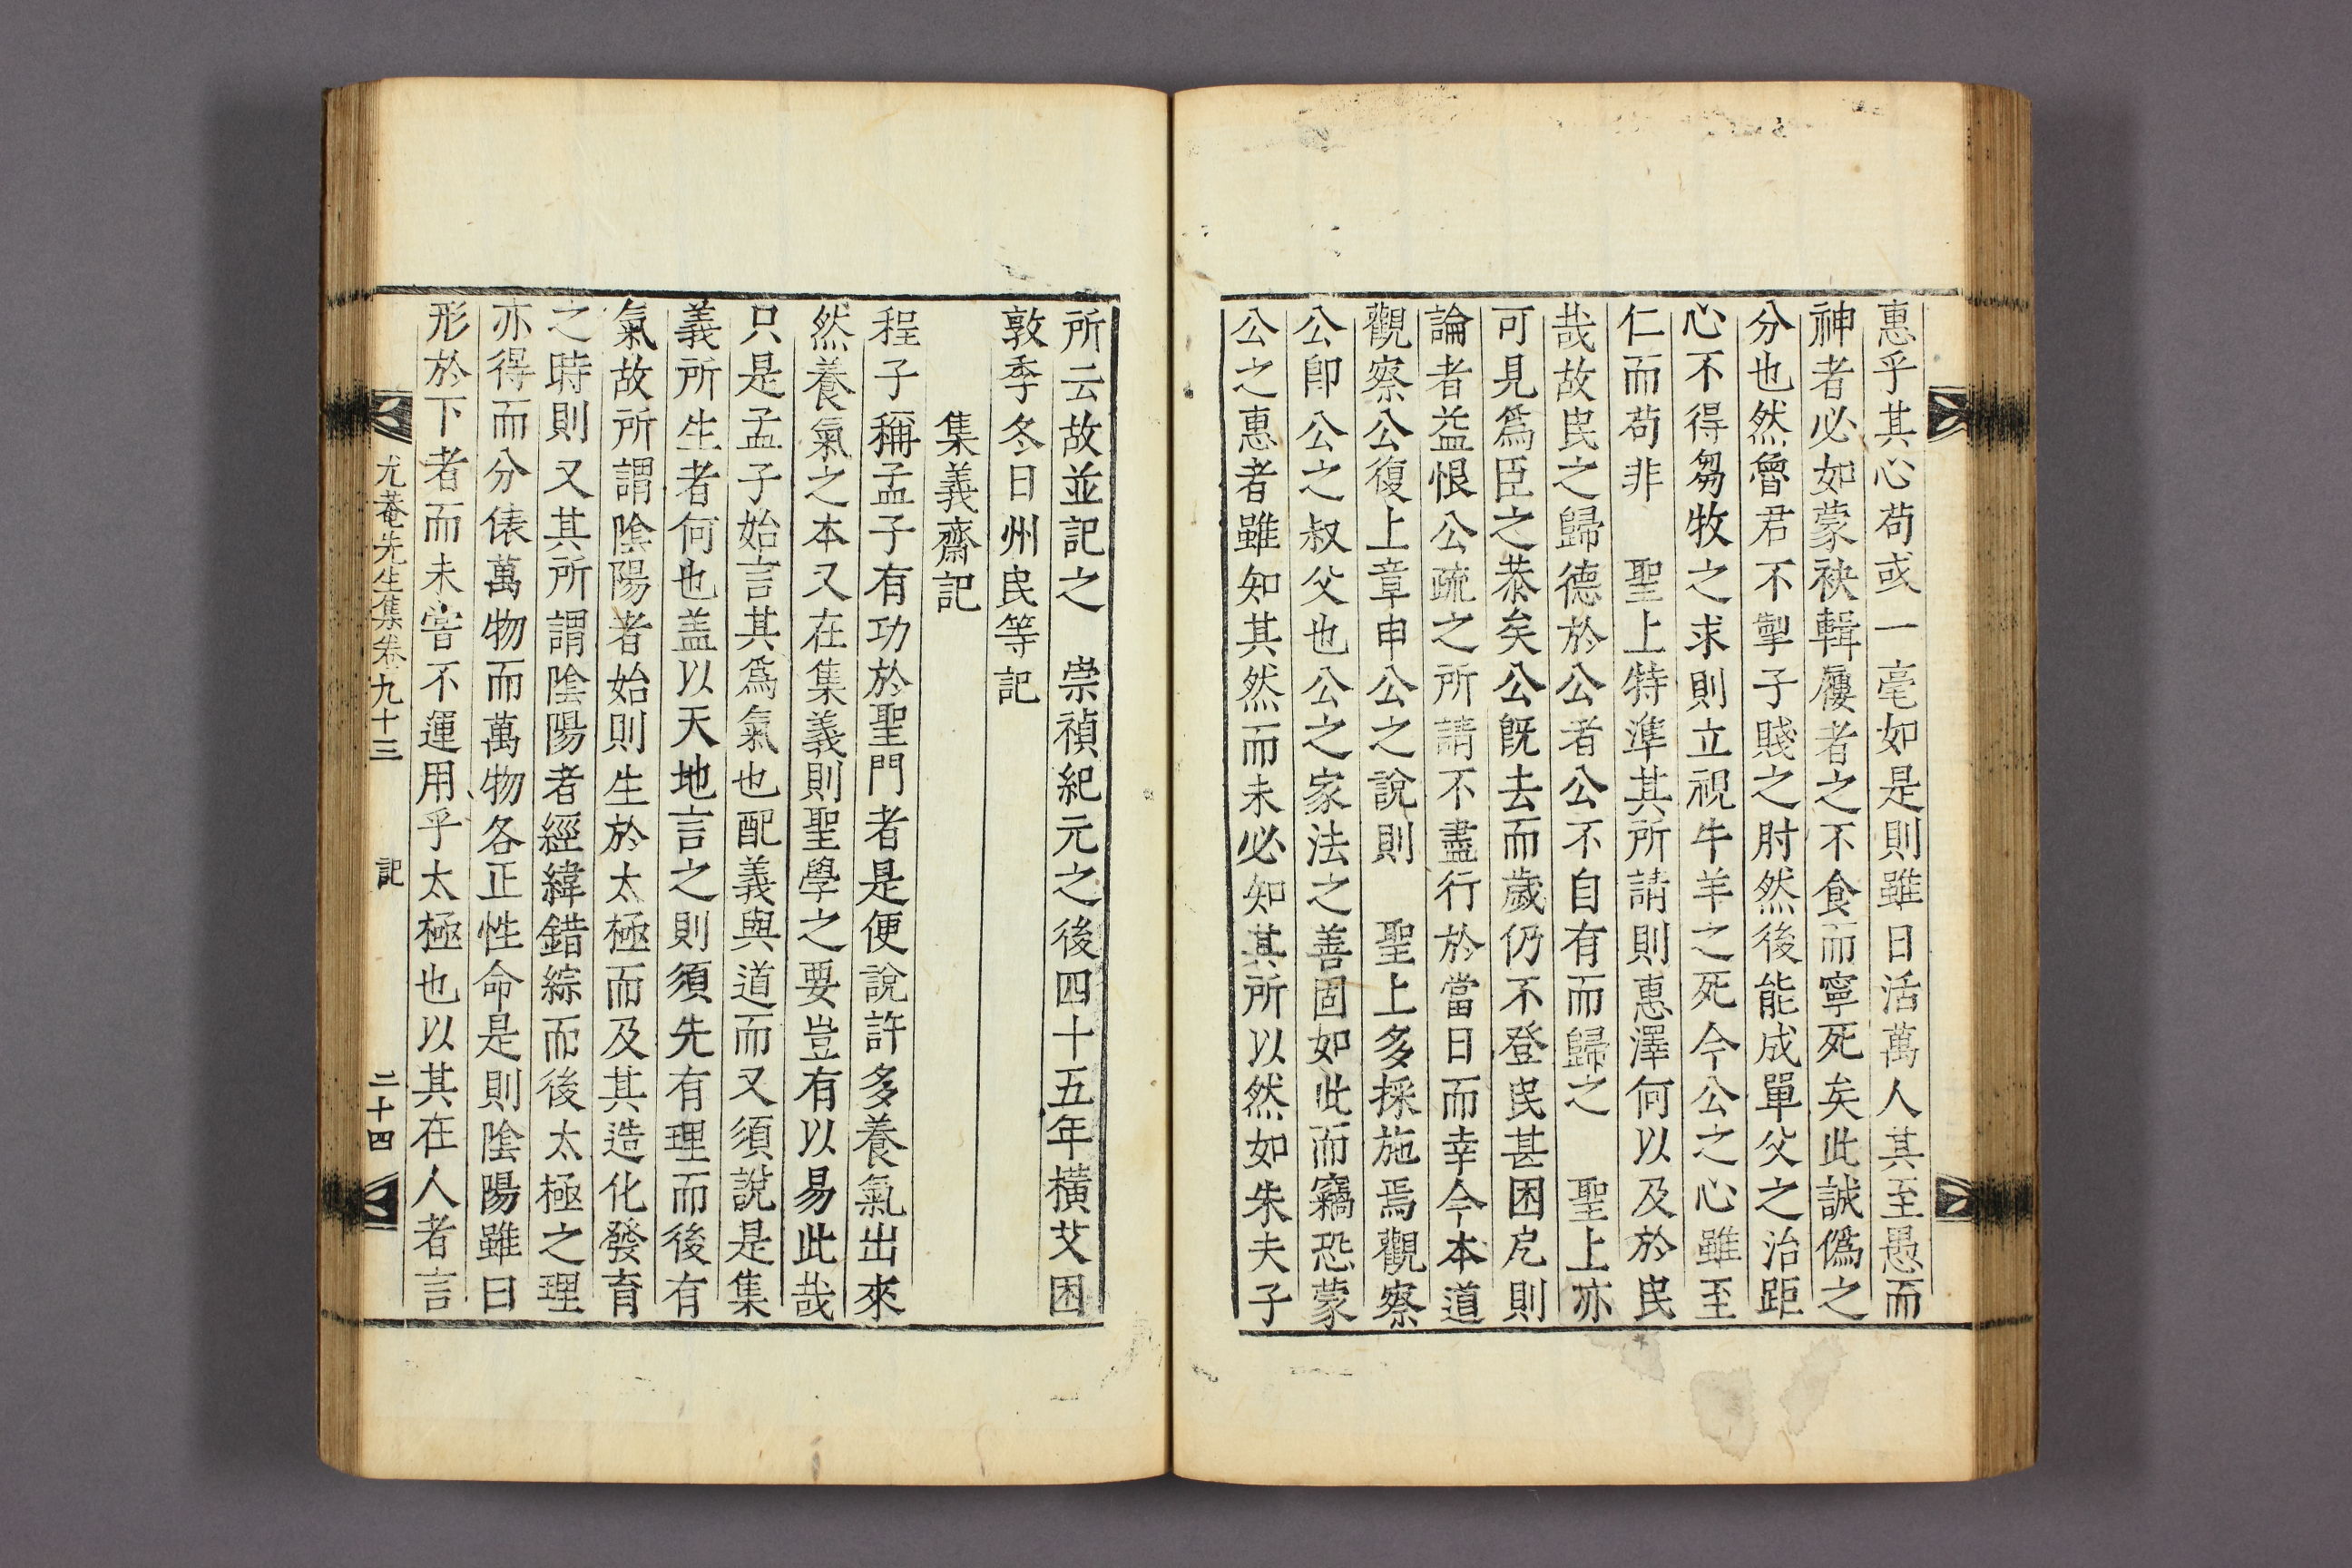 惠乎其心苟或一毫如是則雖日活萬人其至愚而
神者必如蒙袂輯屨者之不食而寧死矣此誠僞之
分也然魯君不掣子賤之肘然後能成單父之治距
心不得芻牧之求則立視牛羊之死今公之心雖至
仁而苟非　聖上特準其所請則惠澤何以及於民
哉故民之歸德於公者公不自有而歸之　聖上亦
可見爲臣之恭矣公旣去而歲仍不登民甚困戹則
論者益恨公疏之所請不盡行於當日而幸今本道
觀察公復上章申公之說則　聖上多採施焉觀察
公卽公之叔父也公之家法之善固如此而竊恐蒙
公之惠者雖知其然而未必知其所以然如朱夫子
所云故並記之　崇禎紀元之後四十五年橫艾困
敦季冬日州民等記
集義齋記
程子稱孟子有功於聖門者是便說許多養氣出來
然養氣之本又在集義則聖學之要豈有以易此哉
只是孟子始言其爲氣也配義與道而又須說是集
義所生者何也盖以天地言之則須先有理而後有
氣故所謂陰陽者始則生於太極而及其造化發育
之時則又其所謂陰陽者經緯錯綜而後太極之理
亦得而分俵萬物而萬物各正性命是則陰陽雖曰
形於下者而未甞不運用乎太極也以其在人者言
尤菴先生集卷九十三　記　二十四